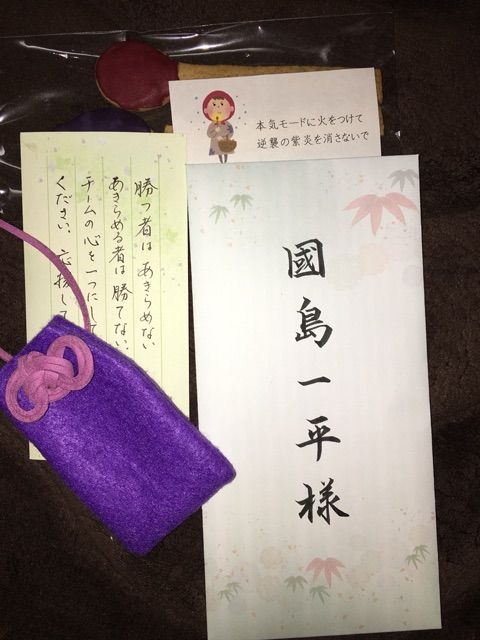 本気モードに火をつけて
逆襲の紫炎を消さないで
勝つ者は あきらめない
あきらめる者は 勝てない。
チームの心を一つにして
ください。応援して
國島一平様